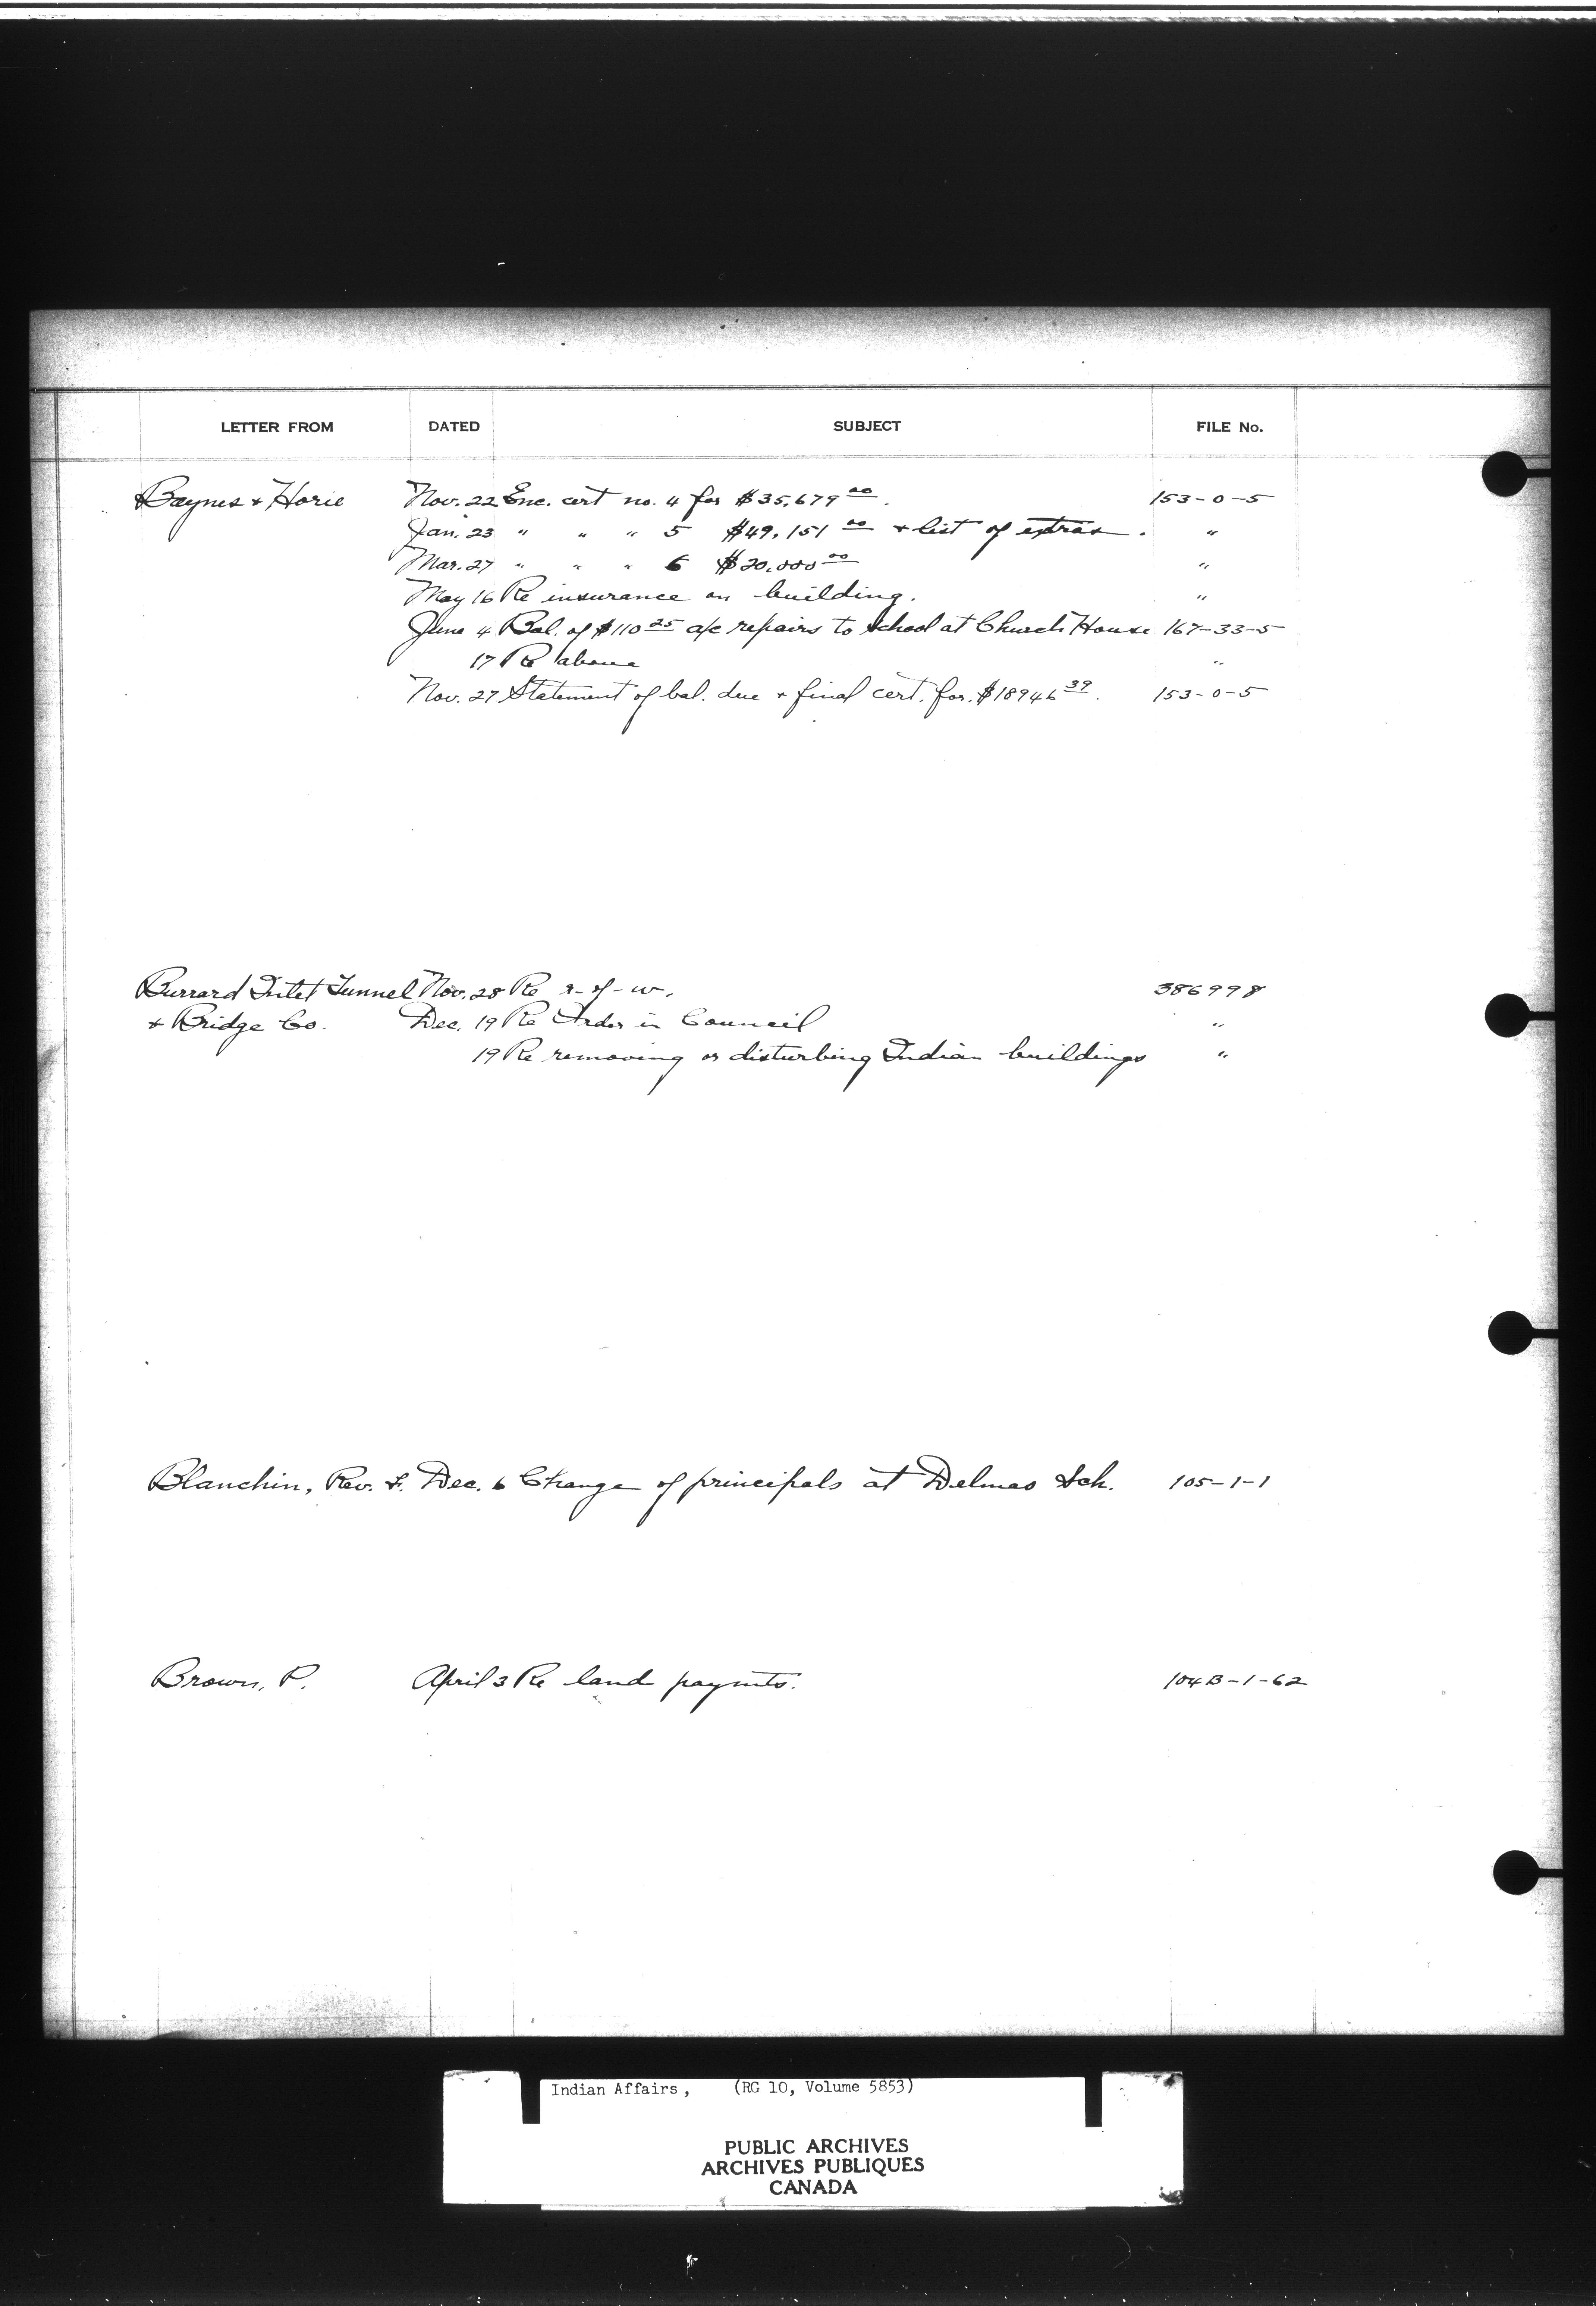 LETTER FROM DATED SUBJECT FILE No.
Baynes & Horie Nov. 22 Enc. cert no. 4 for $35,679 00. 153-0-5
Jan. 23 " " " 5 $49,151 00 & list of extras. "
Mar. 27 " " " 6 $20,000 00 "
May 16 Re insurance on building. "
June 4 Bal. of $110 25 a/c repairs to school at Church House 167-33-5
17 Re above "
Nov. 27 Statement of bal. due & final cert. for $18946 39. 153-0-5
Burrard Inlet Tunnel Nov. 28 Re r-of-w. 386998
& Bridge Co. Dec. 19 Re Order in Council "
19 Re removing or disturbing Indian buildings "
Blanchin, Rev. F. Dec. 6 Change of principals at Delmas Sch. 105-1-1
Brown, P. April 3 Re land paymts. 104B-1-62
Indian Affairs, (RG 10, Volume 5853)
PUBLIC ARCHIVES
ARCHIVES PUBLIQUES
CANADA